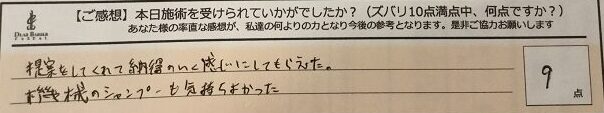 DEAR BARBER
【ご感想】本日施術を受けられていかがでしたか？（ズバリ10点満点中、何点ですか？）
あなた様の率直な感想が、私達の何よりの力となり今後の参考となります。是非ご協力お願いします
提案をしてくれて納得のいく感じにしてもらえた。
機械のシャンプーも気持ちよかった
9
点